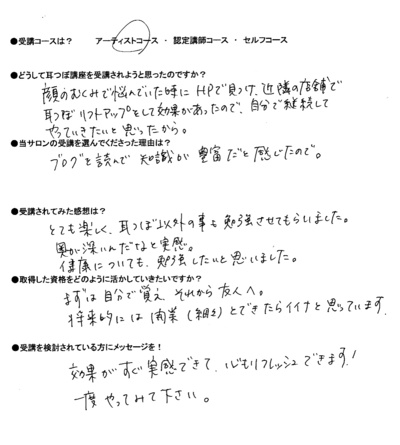 ●受講コースは？ アーティストコース ・ 認定講師コース ・ セルフコース
●どうして耳つぼ講座を受講されようと思ったのですか？
顔のむくみで悩んでいた時に HPで見つけ、近隣の店舗で
耳つぼリフトアップをして効果があったので、自分で継続して
やっていきたいと思ったから。
●当サロンの受講を選んでくださった理由は？
ブログを読んで 知識が 豊富だと感じたので。
●受講されてみた感想は？
とても楽しく、耳つぼ以外の事も勉強させてもらいました。
奥が深いんだなと実感。
健康についても、勉強したいと思いました。
●取得した資格をどのように活かしていきたいですか？
まずは自分で覚え、それから友人へ。
将来的には開業（細々）とできたらイイナと思っています。
●受講を検討されている方にメッセージを！
効果がすぐ実感できて、心もリフレッシュできます！
一度やってみて下さい。